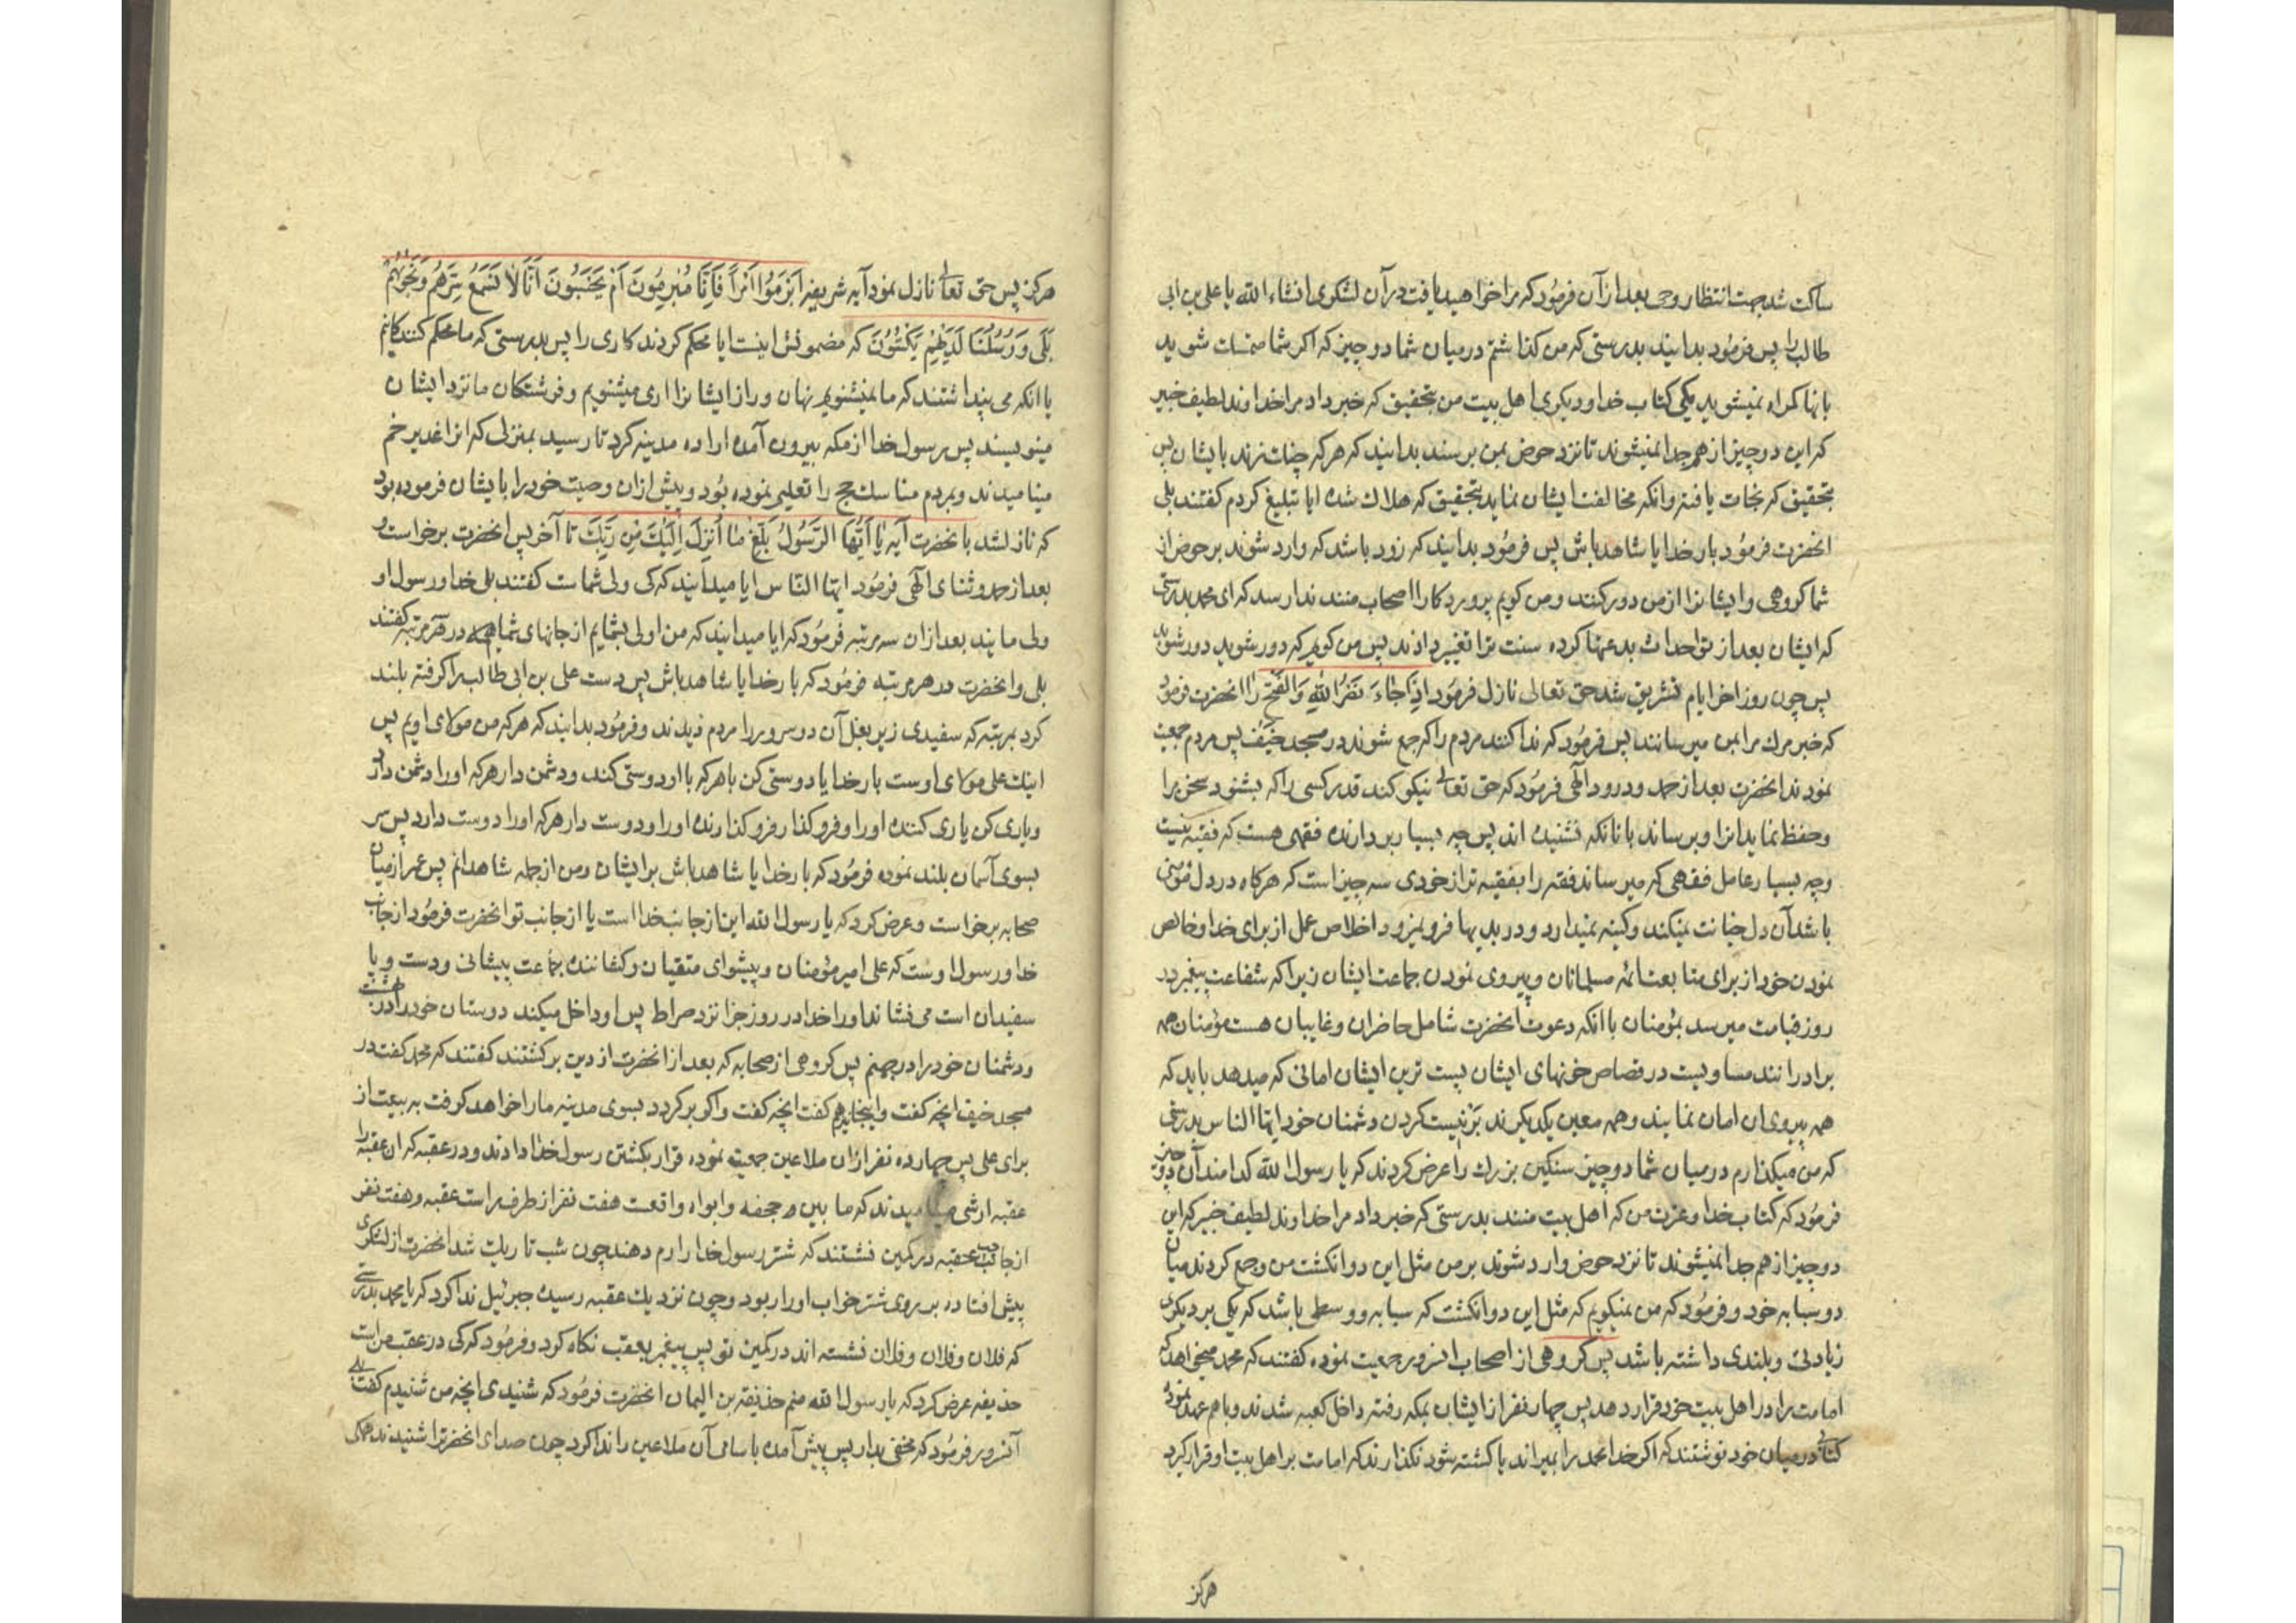 ساکت شد بجهت انتظار وحی بعد از آن فرمود که مرا خواهید یافت در آن لشکری انشاء الله یا علی بن ابی
طالب را پس فرمود بدانید بدرستی که من کذاشتم درمیان شما دو چیز که اکر شما متمسک شوید
بانها کمراه نمیشوید یکی کتاب خدا و دیکری اهل بیت من بتحقیق که خبر داد مرا خداوند لطیف خبیر
که این دو چیز از هم جدا نمیشوند تا نزد حوض بمن برسند بدانید که هرکه چنک زند بایشان پس
بتحقیق که نجات یافته وانکه مخالفت ایشان نماید بتحقیق که هلاک شده ایا تبلیغ کردم کفتند بلی
انحضرت فرمود بار خدایا شاهد باش پس فرمود بدانید که زود باشد که وارد شوند بر حوض از
شما کروهی وایشانرا از من دور کنند ومن کویم پروردکارا اصحاب منند ندا رسد که ای محمد بدرستی
که ایشان بعد از تو احداث بدعتها کرده سنت ترا تغییر دادند پس من کویم که دور شوید دور شوید
پس چون روز اخر ایام تشریق شد حق تعالی نازل فرمود اِذٰا جٰاءَ نَصْرُ اللّهِ وَالْفَتْحُ را انحضرت فرمود
که خبر مرک مرا بمن میرسانند پس فرمود که ندا کنند مردم را که جمع شوند در مسجد خیف پس مردم جمعیت
نمودند انحضرت بعد از حمد ودرود الهی فرمود که حق تعالی نیکو کند قدر کسی را که بشنود سخن مرا
وحفظ نماید انرا وبرساند بانانکه نشنیده اند پس چه بسیار بردارنده فقهی هست که فقیه نیست
وچه بسیار حامل فقهی که میرساند فقه را بفقیه تر از خودی سه چیز است که هرکاه در دل مؤمنی
باشد آن دل خیانت نمیکند وکینه نمیدارد ودر بدیها فرو نمیرود اخلاص عمل از برای خدا وخالص
نمودن خود از برای متابعت ائمه مسلمانان وپیروی نمودن جماعت ایشان زیرا که شفاعت پیغمبر در
روز قیامت میرسد بمؤمنان با انکه دعوت انحضرت شامل حاضران وغایبان هست مؤمنان همه
برادرانند مساویست در قصاص خونهای ایشان پست ترین ایشان امانی که میدهد باید که
همه پیروی ان امان نمایند وهمه معین یکدیکرند بر نیست کردن دشمنان خود ایها الناس بدرستی
که من میکذارم درمیان شما دو چیز سنکین بزرک را عرض کردند که یا رسول الله کدامند آن دو چیز
فرمود که کتاب خدا وعترت من که اهل بیت منند بدرستی که خبر داد مرا خداوند لطیف خبیر که این
دو چیز از هم جدا نمیشوند تا نزد حوض وارد شوند بر من مثل این دو انکشت من وجمع کردند میان
دو سبابه خود وفرمود که من نمیکویم که مثل این دو انکشت که سبابه ووسطی باشد که یکی بر دیکری
زیادتی وبلندی داشته باشد پس کروهی از اصحاب انسرور جمعیت نموده کفتند که محمد میخواهد که
امامت را در اهل بیت خود قرار دهد پس چهار نفر از ایشان بمکه رفته داخل کعبه شدند وباهم عهد نموده
کتابی درمیان خود نوشتند که اکر خدا محمد را بمیراند یا کشته شود نکذارند که امامت بر اهل بیت او قرار کیرد
هرکز
هرکز پس حق تعالی نازل نمود آیه شریفه اَبْرَمُوا اَمْراً فَاِنّٰا مُبْرِمُونَ اَمْ یَحْسَبُونَ اَنّٰا لٰا نَسْمَعُ سِرَّهُمْ وَنَجْوٰیهُمْ
بَلٰی وَرُسُلُنٰا لَدَیْهِمْ یَکْتُبُونَ که مضمونش اینست ایا محکم کردند کاری را پس بدرستی که ما محکم کنندکانیم
یا انکه می پنداشتند که ما نمیشنویم نهان وراز ایشانرا اری میشنویم وفرشتکان ما نزد ایشان
مینویسند پس رسول خدا از مکه بیرون آمده اراده مدینه کرد تا رسید بمنزلی که انرا غدیر خم
مینامیدند وبمردم مناسک حج را تعلیم نموده بود وپیش ازان وصیت خود را بایشان فرموده بود
که نازل شد بانحضرت آیه یٰا اَیُّهَا الرَّسُولُ بَلِّغْ مٰا اُنْزِلَ اِلَیْکَ مِنْ رَبِّکَ تا آخر پس انحضرت برخاست و
بعد از حمد وثنای الهی فرمود ایها الناس ایا میدانید که کی ولی شماست کفتند بلی خدا ورسول او
ولی مایند بعد ازان سه مرتبه فرمود که ایا میدانید که من اولی بشمایم از جانهای شما همه در هر مرتبه کفتند
بلی وانحضرت در هر مرتبه فرمود که بار خدایا شاهد باش پس دست علی بن ابی طالب را کرفته بلند
کرد بمرتبه که سفیدی زیر بغل آن دو سرور را مردم دیدند وفرمود بدانید که هرکه من مولای اویم پس
اینک علی مولای اوست بار خدایا دوستی کن باهرکه با او دوستی کند ودشمن دار هرکه اورا دشمن دارد
ویاری کن یاری کننده اورا وفرو کذار فرو کذارنده اورا ودوست دار هرکه اورا دوست دارد پس سر
بسوی آسمان بلند نموده فرمود که بار خدایا شاهد باش بر ایشان ومن از جمله شاهدانم پس عمر از میان
صحابه برخواست وعرض کرد که یا رسول الله این از جانب خدا است یا از جانب تو انحضرت فرمود از جانب
خدا ورسول اوست که علی امیر مؤمنان وپیشوای متقیان وکشاننده جماعت پیشانی ودست وپا
سفیدان است می نشاند اورا خدا در روز جزا نزد صراط پس او داخل میکند دوستان خود را در بهشت
ودشمنان خود را در جهنم پس کروهی از صحابه که بعد از انحضرت از دین برکشتند کفتند که محمد کفت در
مسجد خیف انچه کفت واینجا هم کفت انچه کفت واکر برکردد بسوی مدینه مارا خواهد کرفت به بیعت از
برای علی پس چهارده نفر ازان ملاعین جمعیت نموده قرار بکشتن رسول خدا دادند ودر عقبه که ان عقبه را
عقبه ارشی مینامیدند که ما بین جحفه وابواء واقعست هفت نفر از طرف راست عقبه وهفت نفر
از جانب چپ عقبه در کمین نشستند که شتر رسول خدا را رم دهند چون شب تاریک شد انحضرت از لشکری
پیش افتاده بر روی شتر خواب اورا ربود وچون نزدیک عقبه رسید جبرئیل ندا کرد که یا محمد بدرستی
که فلان وفلان وفلان نشسته اند در کمین تو پس پیغمبر بعقب نکاه کرد وفرمود که کی در عقب من است
حذیفه عرض کرد که یا رسول الله منم حذیفة بن الیمان انحضرت فرمود که شنیدی انچه من شنیدم کفت بلی
آنسرور فرمود که مخفی بدار پس پیش آمده باسامی آن ملاعین را ندا کرد چون صدای انحضرترا شنیدند همکی